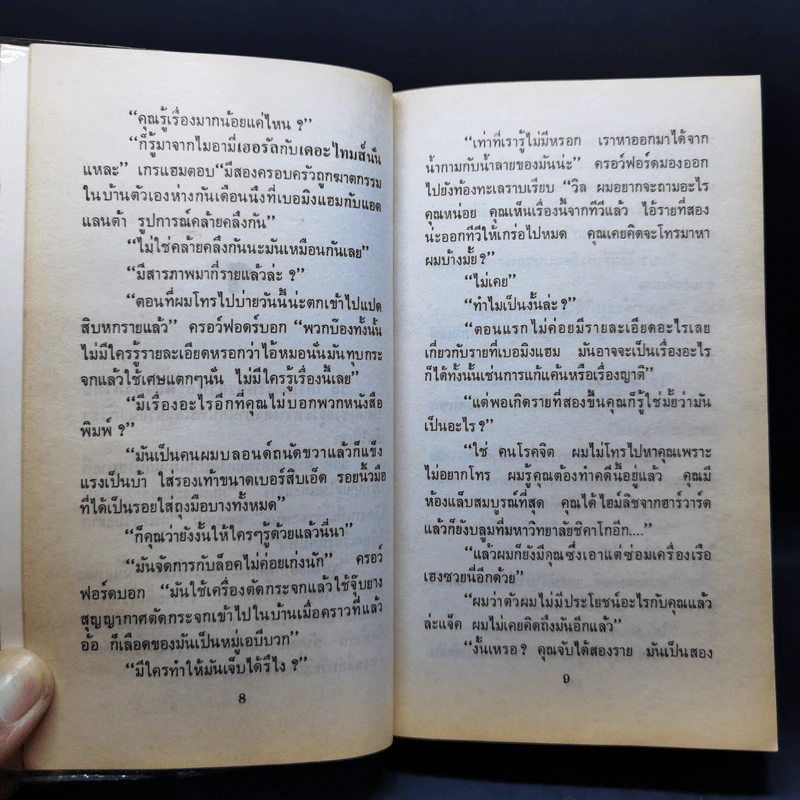 “คุณรู้เรื่องมากน้อยแค่ไหน ?”
“ก็รู้มาจากไมอามี่เฮอรัลกับเดอะไทมส์นั่น
แหละ” เกรแฮมตอบ “มีสองครอบครัวถูกฆาตกรรม
ในบ้านตัวเองห่างกันเดือนนึงที่เบอมิงแฮมกับแอต
แลนต้า รูปการณ์คล้ายคลึงกัน”
“ไม่ใช่คล้ายคลึงกันนะมันเหมือนกันเลย”
“มีสารภาพมากี่รายแล้วล่ะ ?”
“ตอนที่ผมโทรไปบ่ายวันนี้น่ะตกเข้าไปแปด
สิบหกรายแล้ว” ครอว์ฟอดร์บอก “พวกบ๊องทั้งนั้น
ไม่มีใครรู้รายละเอียดหรอกว่าไอ้หมอนั่นมันทุบกระ
จกแล้วใช้เศษแตกๆนั่น ไม่มีใครรู้เรื่องนี้เลย”
“มีเรื่องอะไรอีกที่คุณไม่บอกพวกหนังสือ
พิมพ์ ?”
“มันเป็นคนผมบลอนด์ถนัดขวาแล้วก็แข็ง
แรงเป็นบ้า ใส่รองเท้าขนาดเบอร์สิบเอ็ด รอยนิ้วมือ
ที่ได้เป็นรอยใส่ถุงมือบางทั้งหมด”
“ก็คุณว่ายังงั้นให้ใครๆรู้ด้วยแล้วนี่นา”
“มันจัดการกับล็อคไม่ค่อยเก่งนัก” ครอว์
ฟอร์ดบอก “มันใช้เครื่องตัดกระจกแล้วใช้จุ๊บยาง
สุญญากาศตัดกระจกเข้าไปในบ้านเมื่อคราวที่แล้ว
อ้อ ก็เลือดของมันเป็นหมู่เอบีบวก”
“มีใครทำให้มันเจ็บได้รึไง ?”
8
“เท่าที่เรารู้ไม่มีหรอก เราหาออกมาได้จาก
น้ำกามกับน้ำลายของมันน่ะ” ครอว์ฟอร์ดมองออก
ไปยังท้องทะเลราบเรียบ “วิล ผมอยากจะถามอะไร
คุณหน่อย คุณเห็นเรื่องนี้จากทีวีแล้ว ไอ้รายที่สอง
น่ะออกทีวีให้เกร่อไปหมด คุณเคยคิดจะโทรมาหา
ผมบ้างมั้ย?”
“ไม่เคย”
“ทำไมเป็นงั้นล่ะ ?”
“ตอนแรกไม่ค่อยมีรายละเอียดอะไรเลย
เกี่ยวกับรายที่เบอมิงแฮม มันอาจจะเป็นเรื่องอะไร
ก็ได้ทั้งนั้นเช่นการแก้แค้นหรือเรื่องญาติ”
“แต่พอเกิดรายที่สองขึ้นคุณก็รู้ใช่มั้ยว่ามัน
เป็นอะไร ?”
“ใช่ คนโรคจิต ผมไม่โทรไปหาคุณเพราะ
ไม่อยากโทร ผมรู้คุณต้องทำคดีนี้อยู่แล้ว คุณมี
ห้องแล็บสมบูรณ์ที่สุด คุณได้ไฮม์ลิชจากฮาร์วาร์ด
แล้วก็ยังบลูมที่มหาวิทยาลัยชิคาโกอีก....”
“แล้วผมก็ยังมีคุณซึ่งเอาแต่ซ่อมเครื่องเรือ
เฮงซวยนี่อีกด้วย”
“ผมว่าตัวผมไม่มีประโยชน์อะไรกับคุณแล้ว
ล่ะแจ็ค ผมไม่เคยคิดถึงมันอีกแล้ว”
“งั้นเหรอ? คุณจับได้สองราย มันเป็นสอง
9